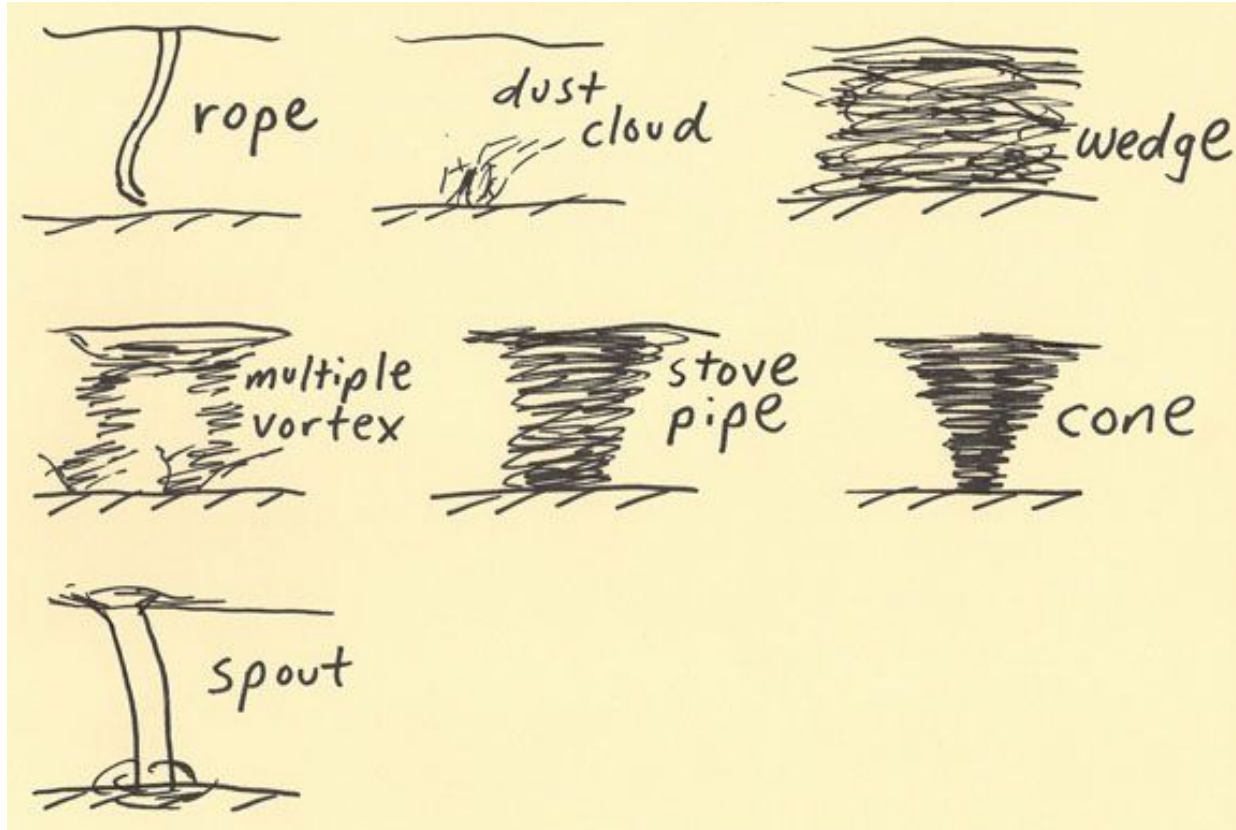 rope
dust
cloud
wedge
multiple
vortex
stove
pipe
cone
spout